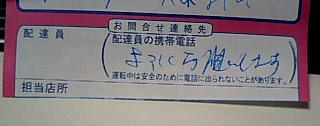 お問合せ連絡先
配達員
配達員の携帯電話
よろしくお願いします
運転中は安全のために電話に出られないことがあります。
担当店所